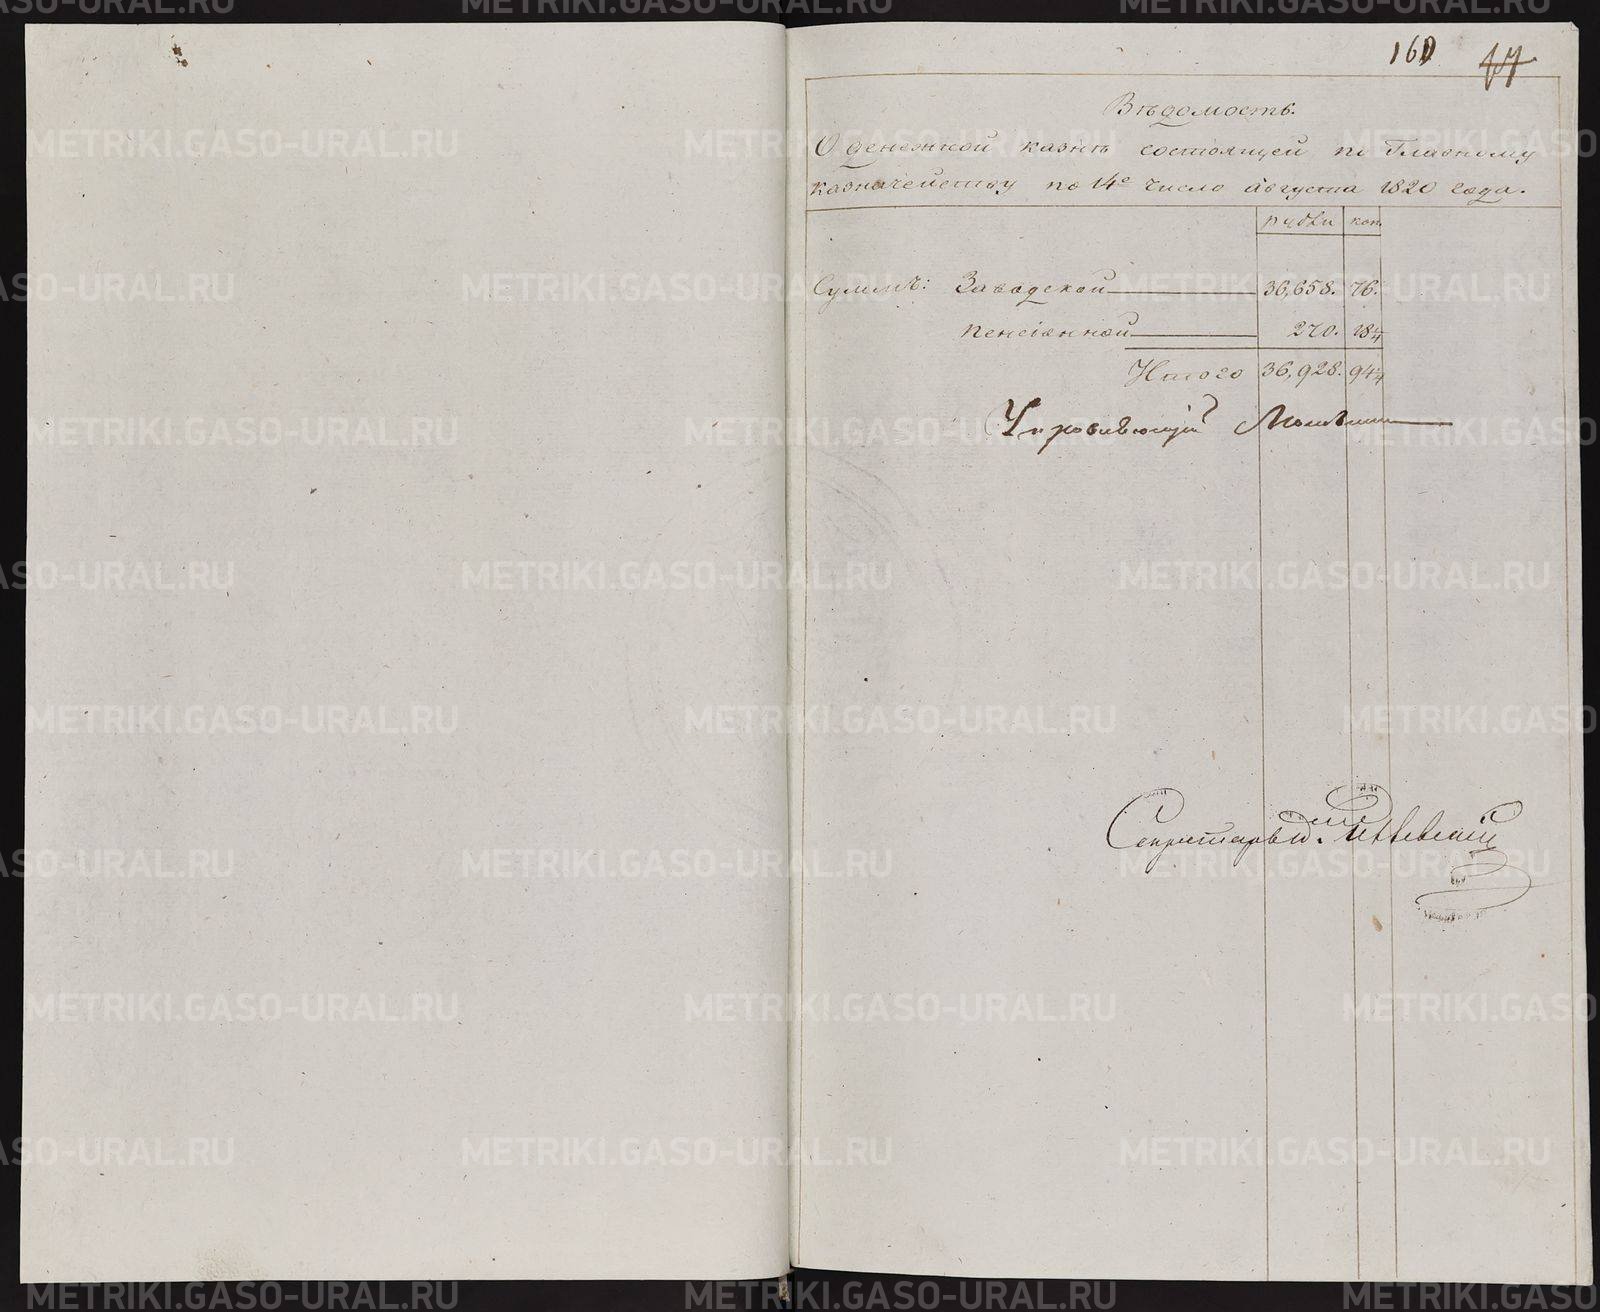 160
Вѣдомость.
О денежной казнѣ состоящей по Главному
казначейству по 14е число августа 1820 года.
рубли коп.
Суммъ: Заводской 36,658. 76.
пенсіонной 270. 18 1/4
Итого 36,928. 94 1/4
Управляющій
Секретарь
METRIKI.GASO-URAL.RU